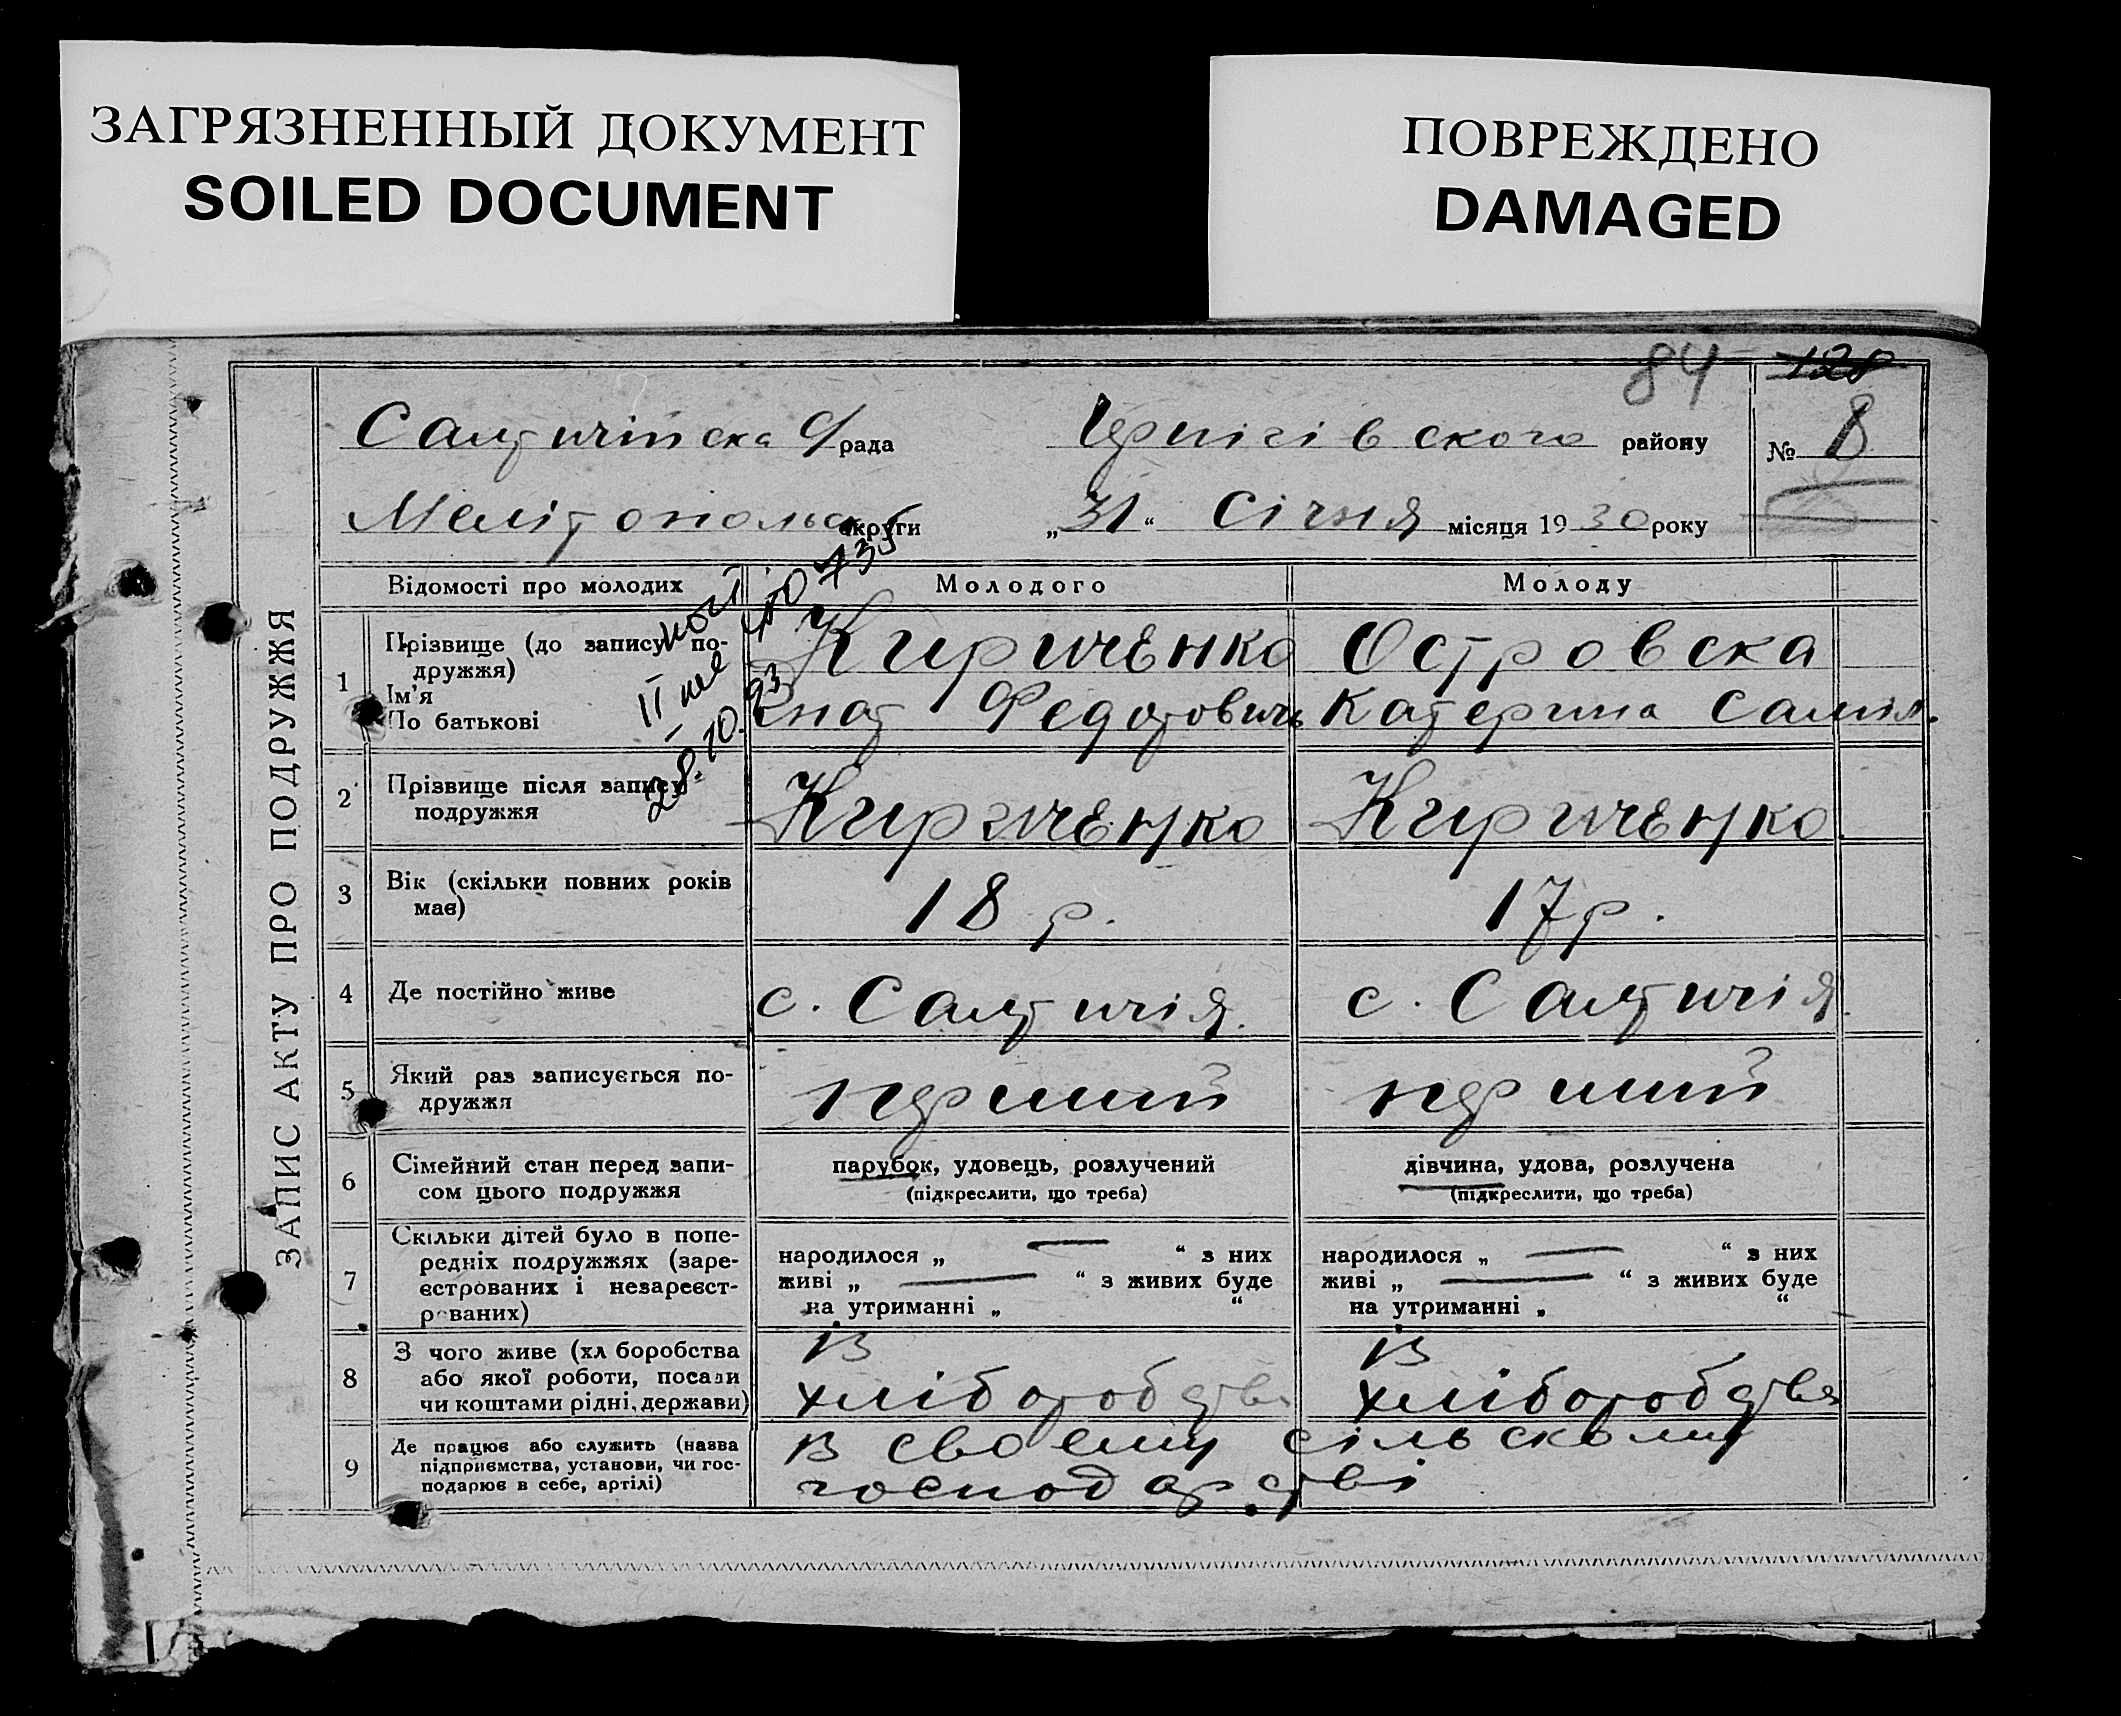 ЗАГРЯЗНЕННЫЙ ДОКУМЕНТ
SOILED DOCUMENT
ПОВРЕЖДЕНО
DAMAGED
84 128
Салтичійска С/рада Чернігівского району № 8
Мелітопольс округи „31“ Січня місяця 1930 року
ЗАПИС АКТУ ПРО ПОДРУЖЖЯ
Відомості про молодих Молодого Молоду
1 Прізвище (до запису по-
дружжя) Кириченко Островска
Ім'я
По батькові Гнат Федотович Катерина Саміл.
28.10.93
2 Прізвище після запису
подружжя Кириченко Кириченко
3 Вік (скільки повних років
має) 18 р. 17 р.
4 Де постійно живе с. Салтичія. с. Салтичія.
5 Який раз записується по-
дружжя перший перший
6 Сімейний стан перед запи-
сом цього подружжя
парубок, удовець, розлучений
(підкреслити, що треба)
дівчина, удова, розлучена
(підкреслити, що треба)
7 Скільки дітей було в попе-
редніх подружжях (заре-
єстрованих і незареєст-
рованих)
народилося „ — “ з них
живі „ — “ з живих буде
на утриманні „ “
народилося „ — “ з них
живі „ — “ з живих буде
на утриманні „ “
8 З чого живе (хл боробства
або якої роботи, посади
чи коштами рідні, держави)
З
хліборобства
З
хліборобства
9 Де працює або служить (назва
підприємства, установи, чи гос-
подарює в себе, артілі)
В своєму сільскому
господарстві